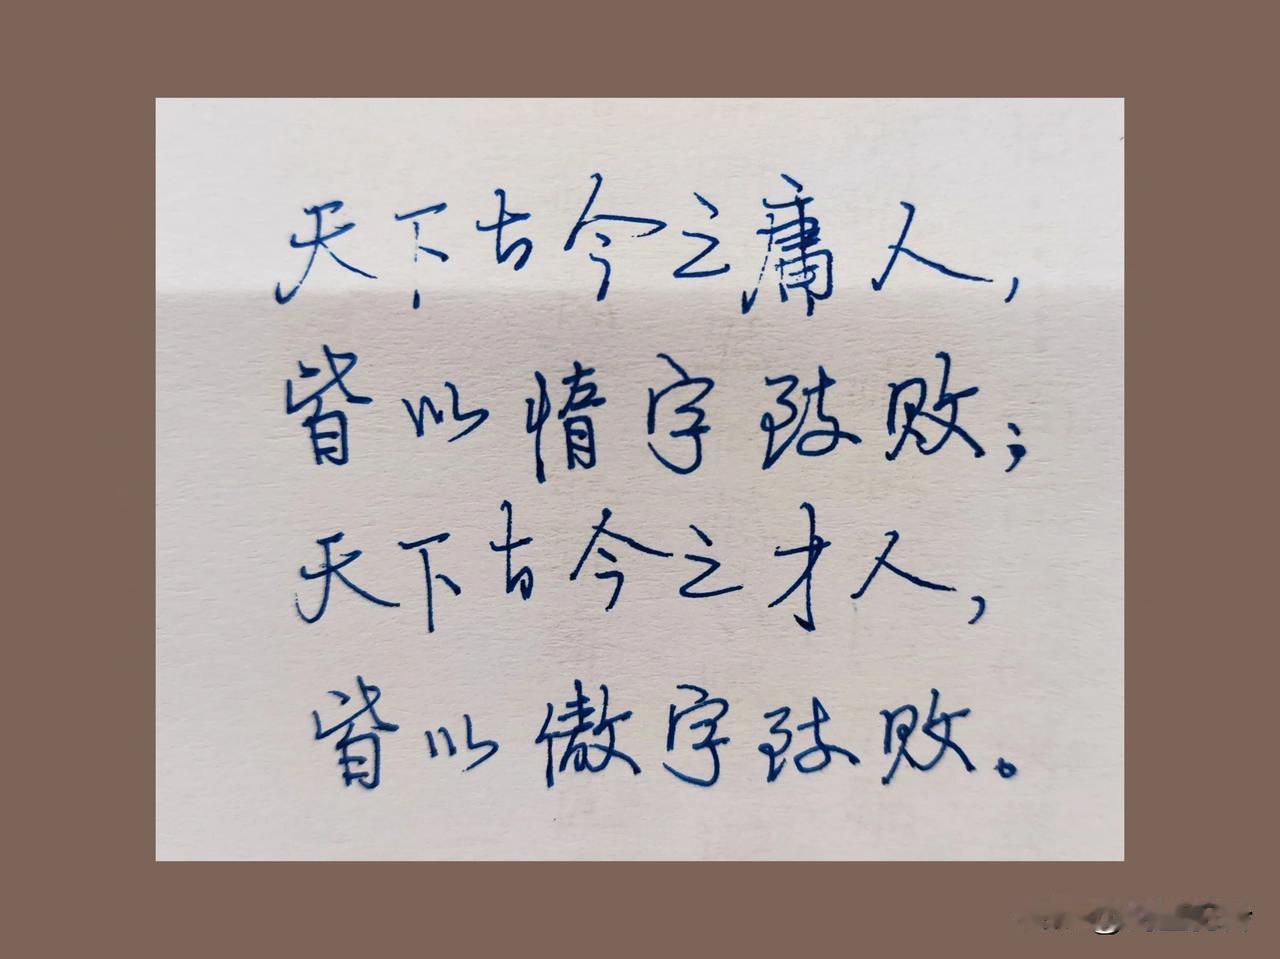 天下古今之庸人，
皆以惰字致败；
天下古今之才人，
皆以傲字致败。